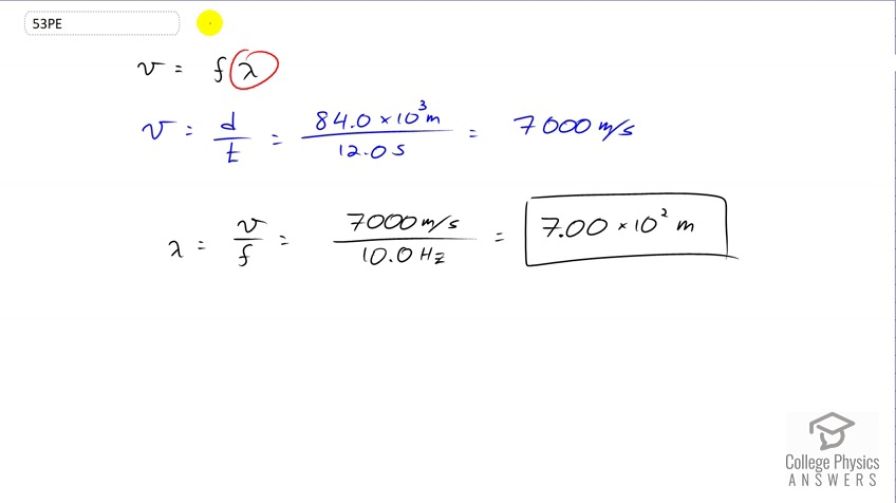 53PE
v = fλ
v = d/t = 84.0 × 10³ m / 12.0 s = 7000 m/s
λ = v/f = 7000 m/s / 10.0 Hz = 7.00 × 10² m
College Physics
ANSWERS